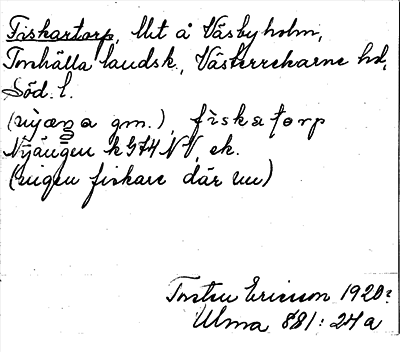 Fiskartorp, lht å Väsbyholm,
Torshälla landsk., Västerrekarne hd,
Söd. l.
(nỳæŋa gm.), fìskatorp
Nyängen k 574 NV, ek.
(ingen fiskare där nu)
Torsten Ericsson 1920:
Ulma 881: 24 a